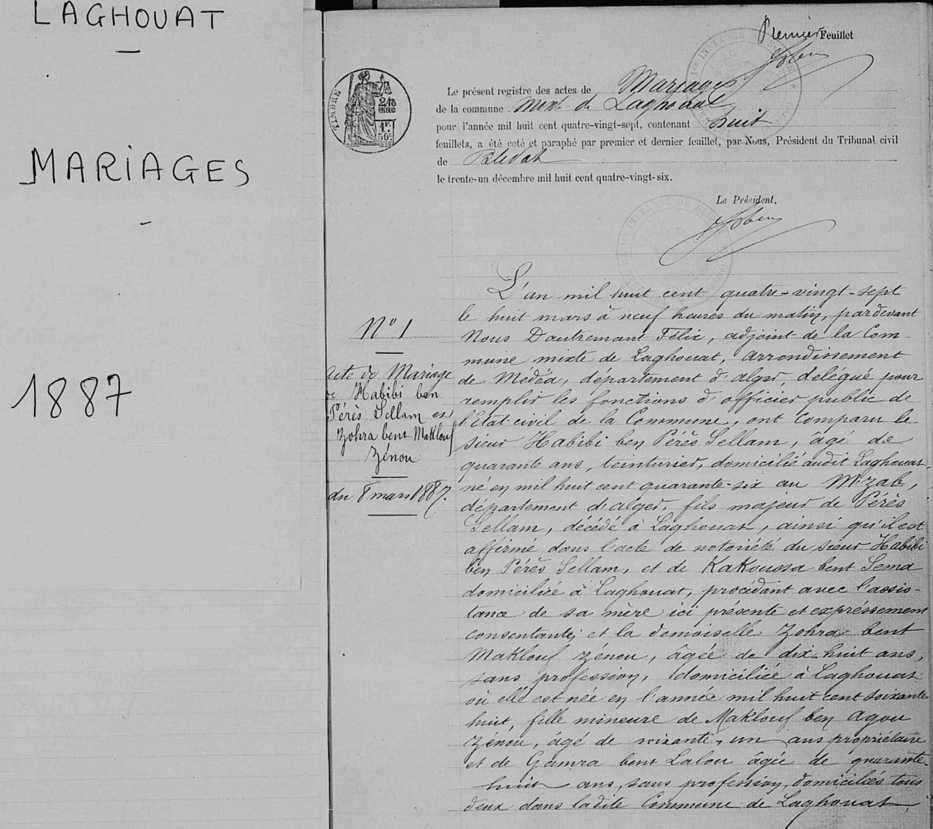 LAGHOUAT
MARIAGES
1887
Premier Feuillet
TIMBRE
Le présent registre des actes de Mariages
de la commune mixte de Laghouat
pour l'année mil huit cent quatre-vingt-sept, contenant huit
feuillets, a été coté et paraphé par premier et dernier feuillet, par Nous, Président du Tribunal civil
de Blidah
le trente-un décembre mil huit cent quatre-vingt-six.
Le Président,
N° 1
Acte de Mariage
de Habibi ben
Pérès Sellam et
Zohra bent Maklouf
Zénou
du 8 mars 1887.
L'an mil huit cent quatre-vingt-sept
le huit mars à neuf heures du matin, pardevant
Nous Dautremant Félix, adjoint de la Com-
mune mixte de Laghouat, arrondissement
de Médéa, département d'alger, délégué pour
remplir les fonctions d'officier public de
l'Etat civil de la Commune, ont comparu le
sieur Habibi ben Pérès Sellam, âgé de
quarante ans, teinturier, domicilié audit Laghouat
né en mil huit cent quarante-six au M'zab,
département d'alger, fils majeur de Pérès
Sellam, décédé à Laghouat, ainsi qu'il est
affirmé dans l'acte de notoriété du sieur Habibi
ben Pérès Sellam, et de Kakoussa bent Sema
domiciliée à Laghouat, procédant avec l'assis-
tance de sa mère ici présente et expressément
consentante; et la demoiselle Zohra bent
Maklouf Zénou, âgée de dix-huit ans,
sans profession, domiciliée à Laghouat
où elle est née en l'année mil huit cent soixante
huit, fille mineure de Maklouf ben Agou
Zénou, âgé de soixante-un ans propriétaire
et de Gamra bent Lalou âgée de quarante-
huit ans, sans profession, domiciliés tous
deux dans ladite Commune de Laghouat,